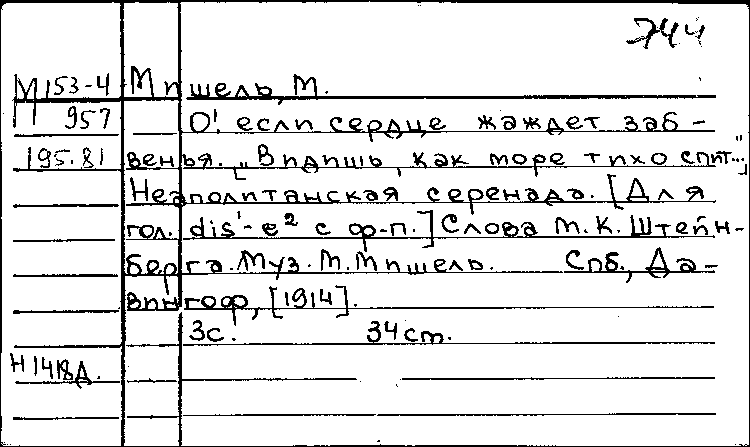 744
М 153-4 Мишель, М.
957 О! если сердце жаждет заб-
195.81 венья. ["Видишь, как море тихо спит..."]
Неаполитанская серенада. [Для
гол. dis¹-e² с ф-п.] Слова М.К. Штейн-
берга. Муз. М. Мишель. Спб., Да-
вингоф, [1914].
3с. 34 cm.
Н 1418д.